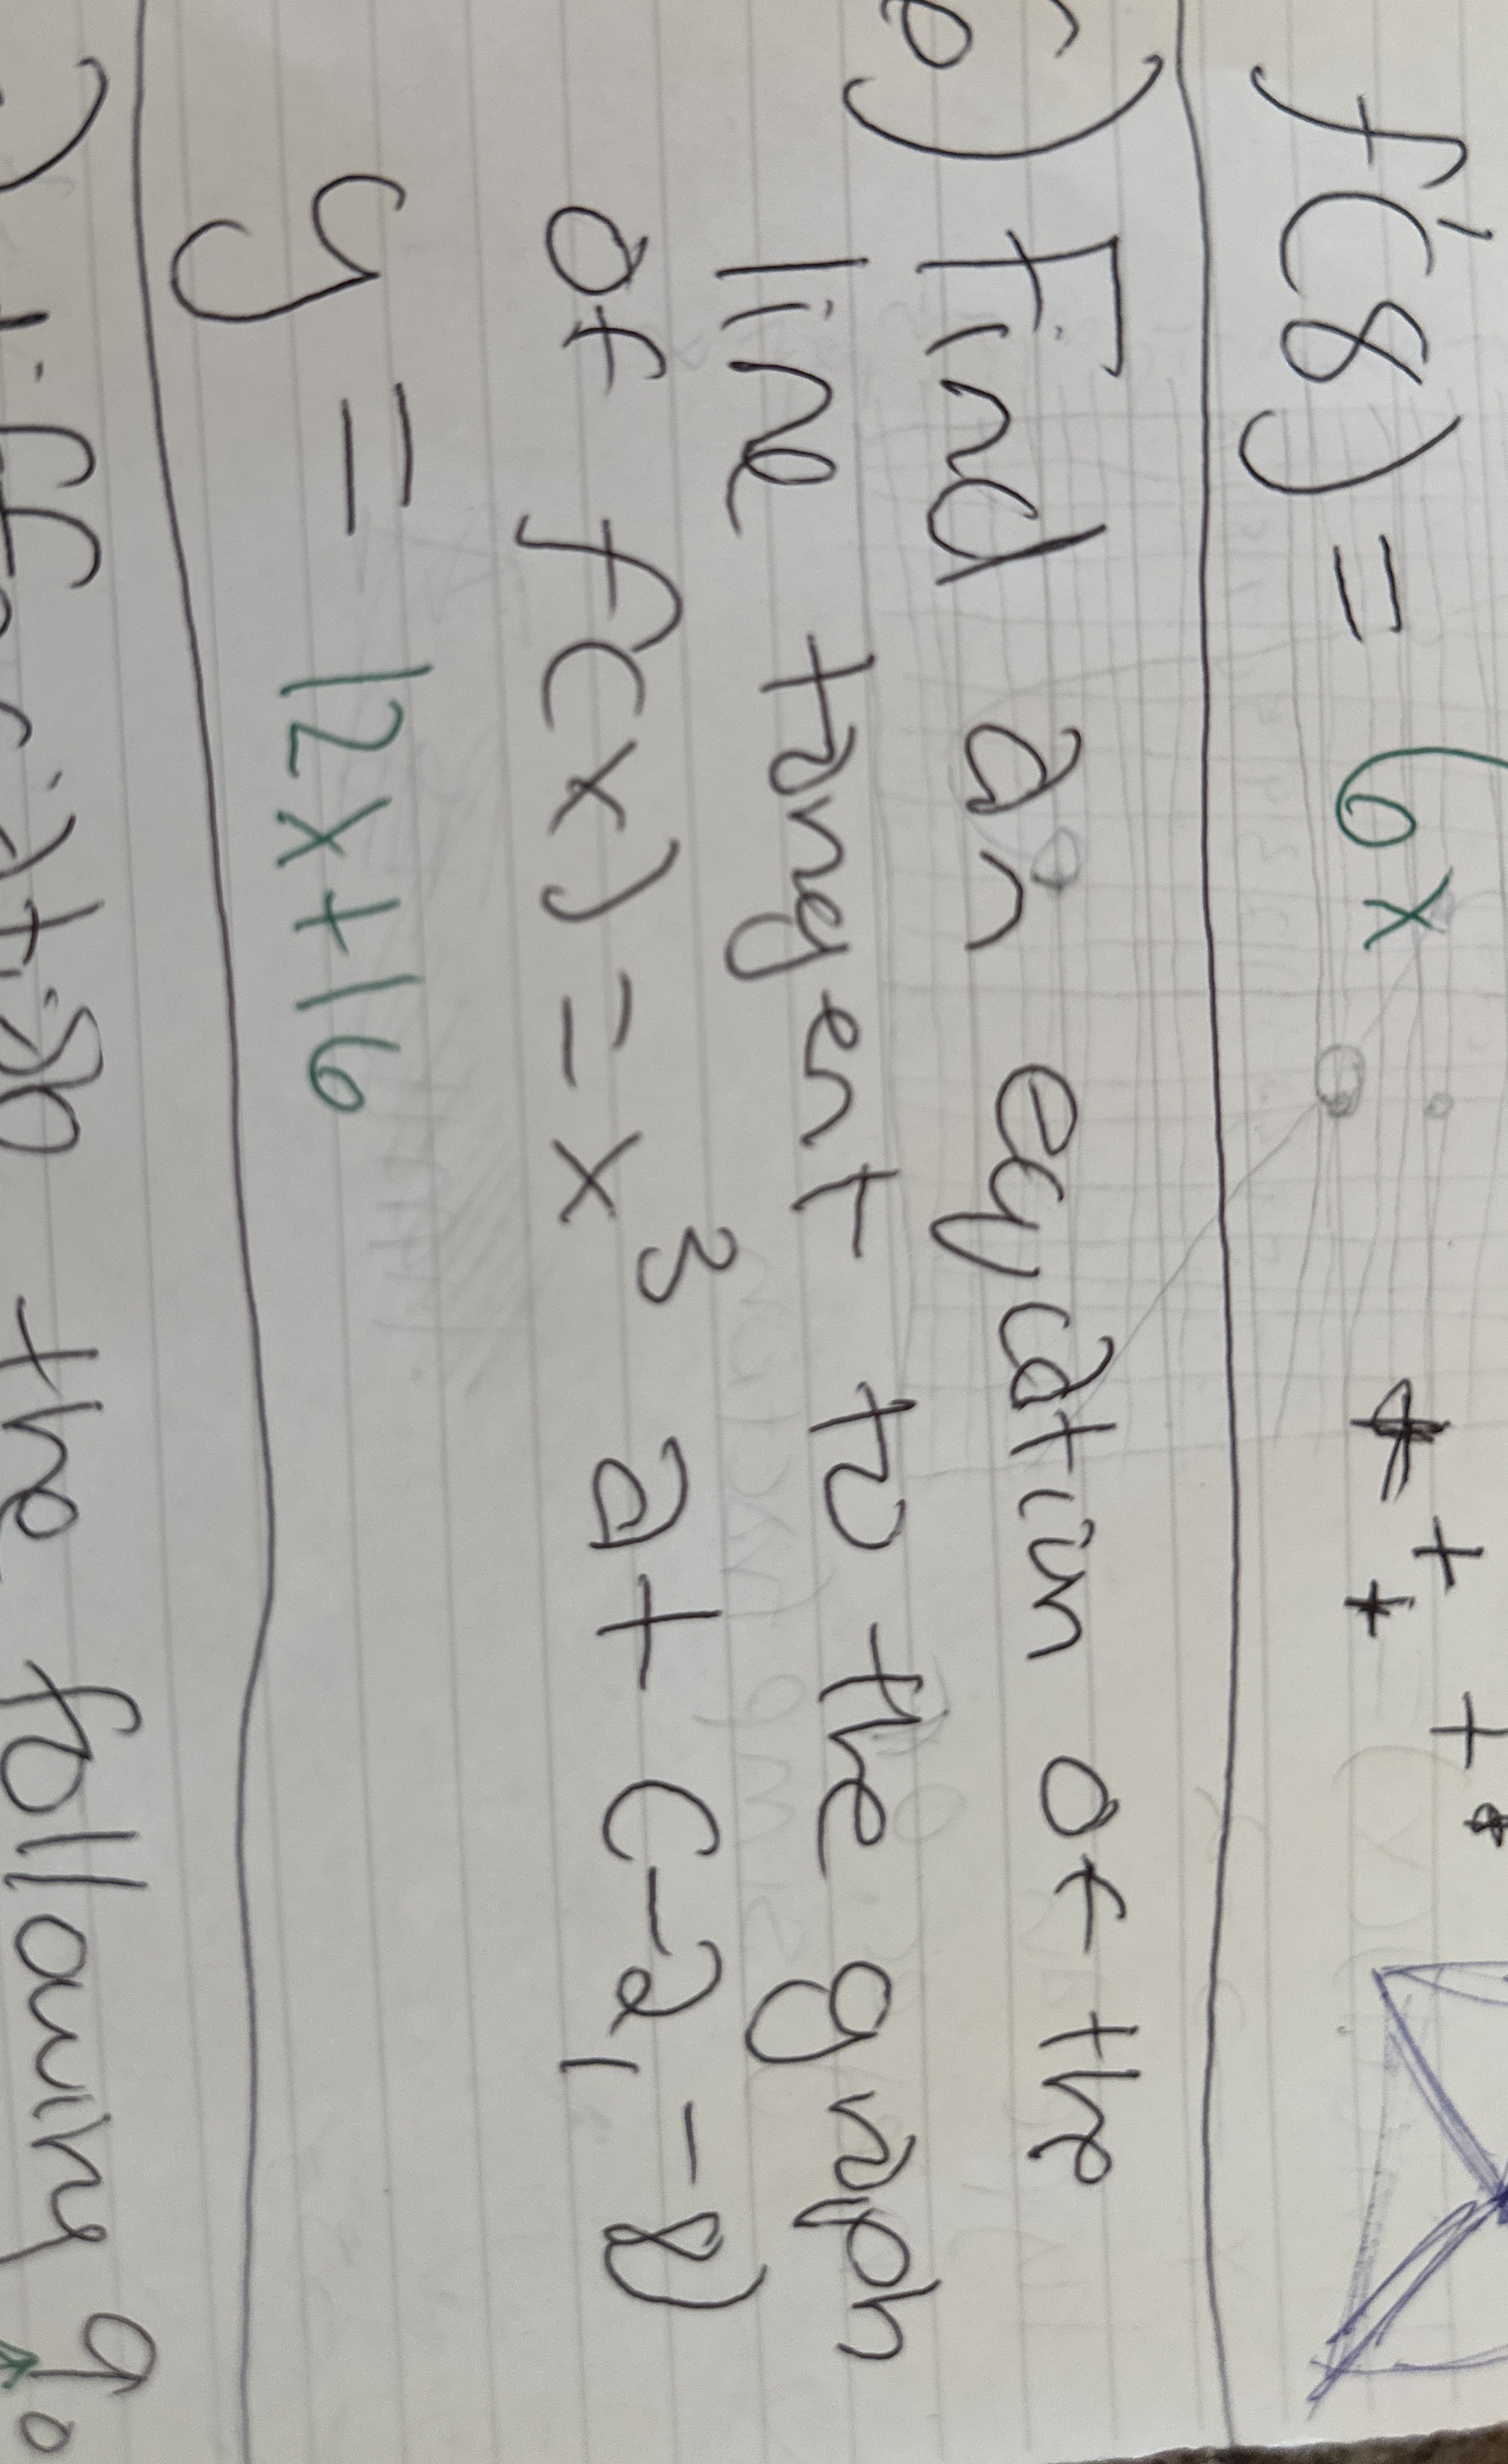 f'(8) = 6x
6) Find an equation of the
line tangent to the graph
of f(x) = x³ at (-2, -8)
y = 12x+16
the following